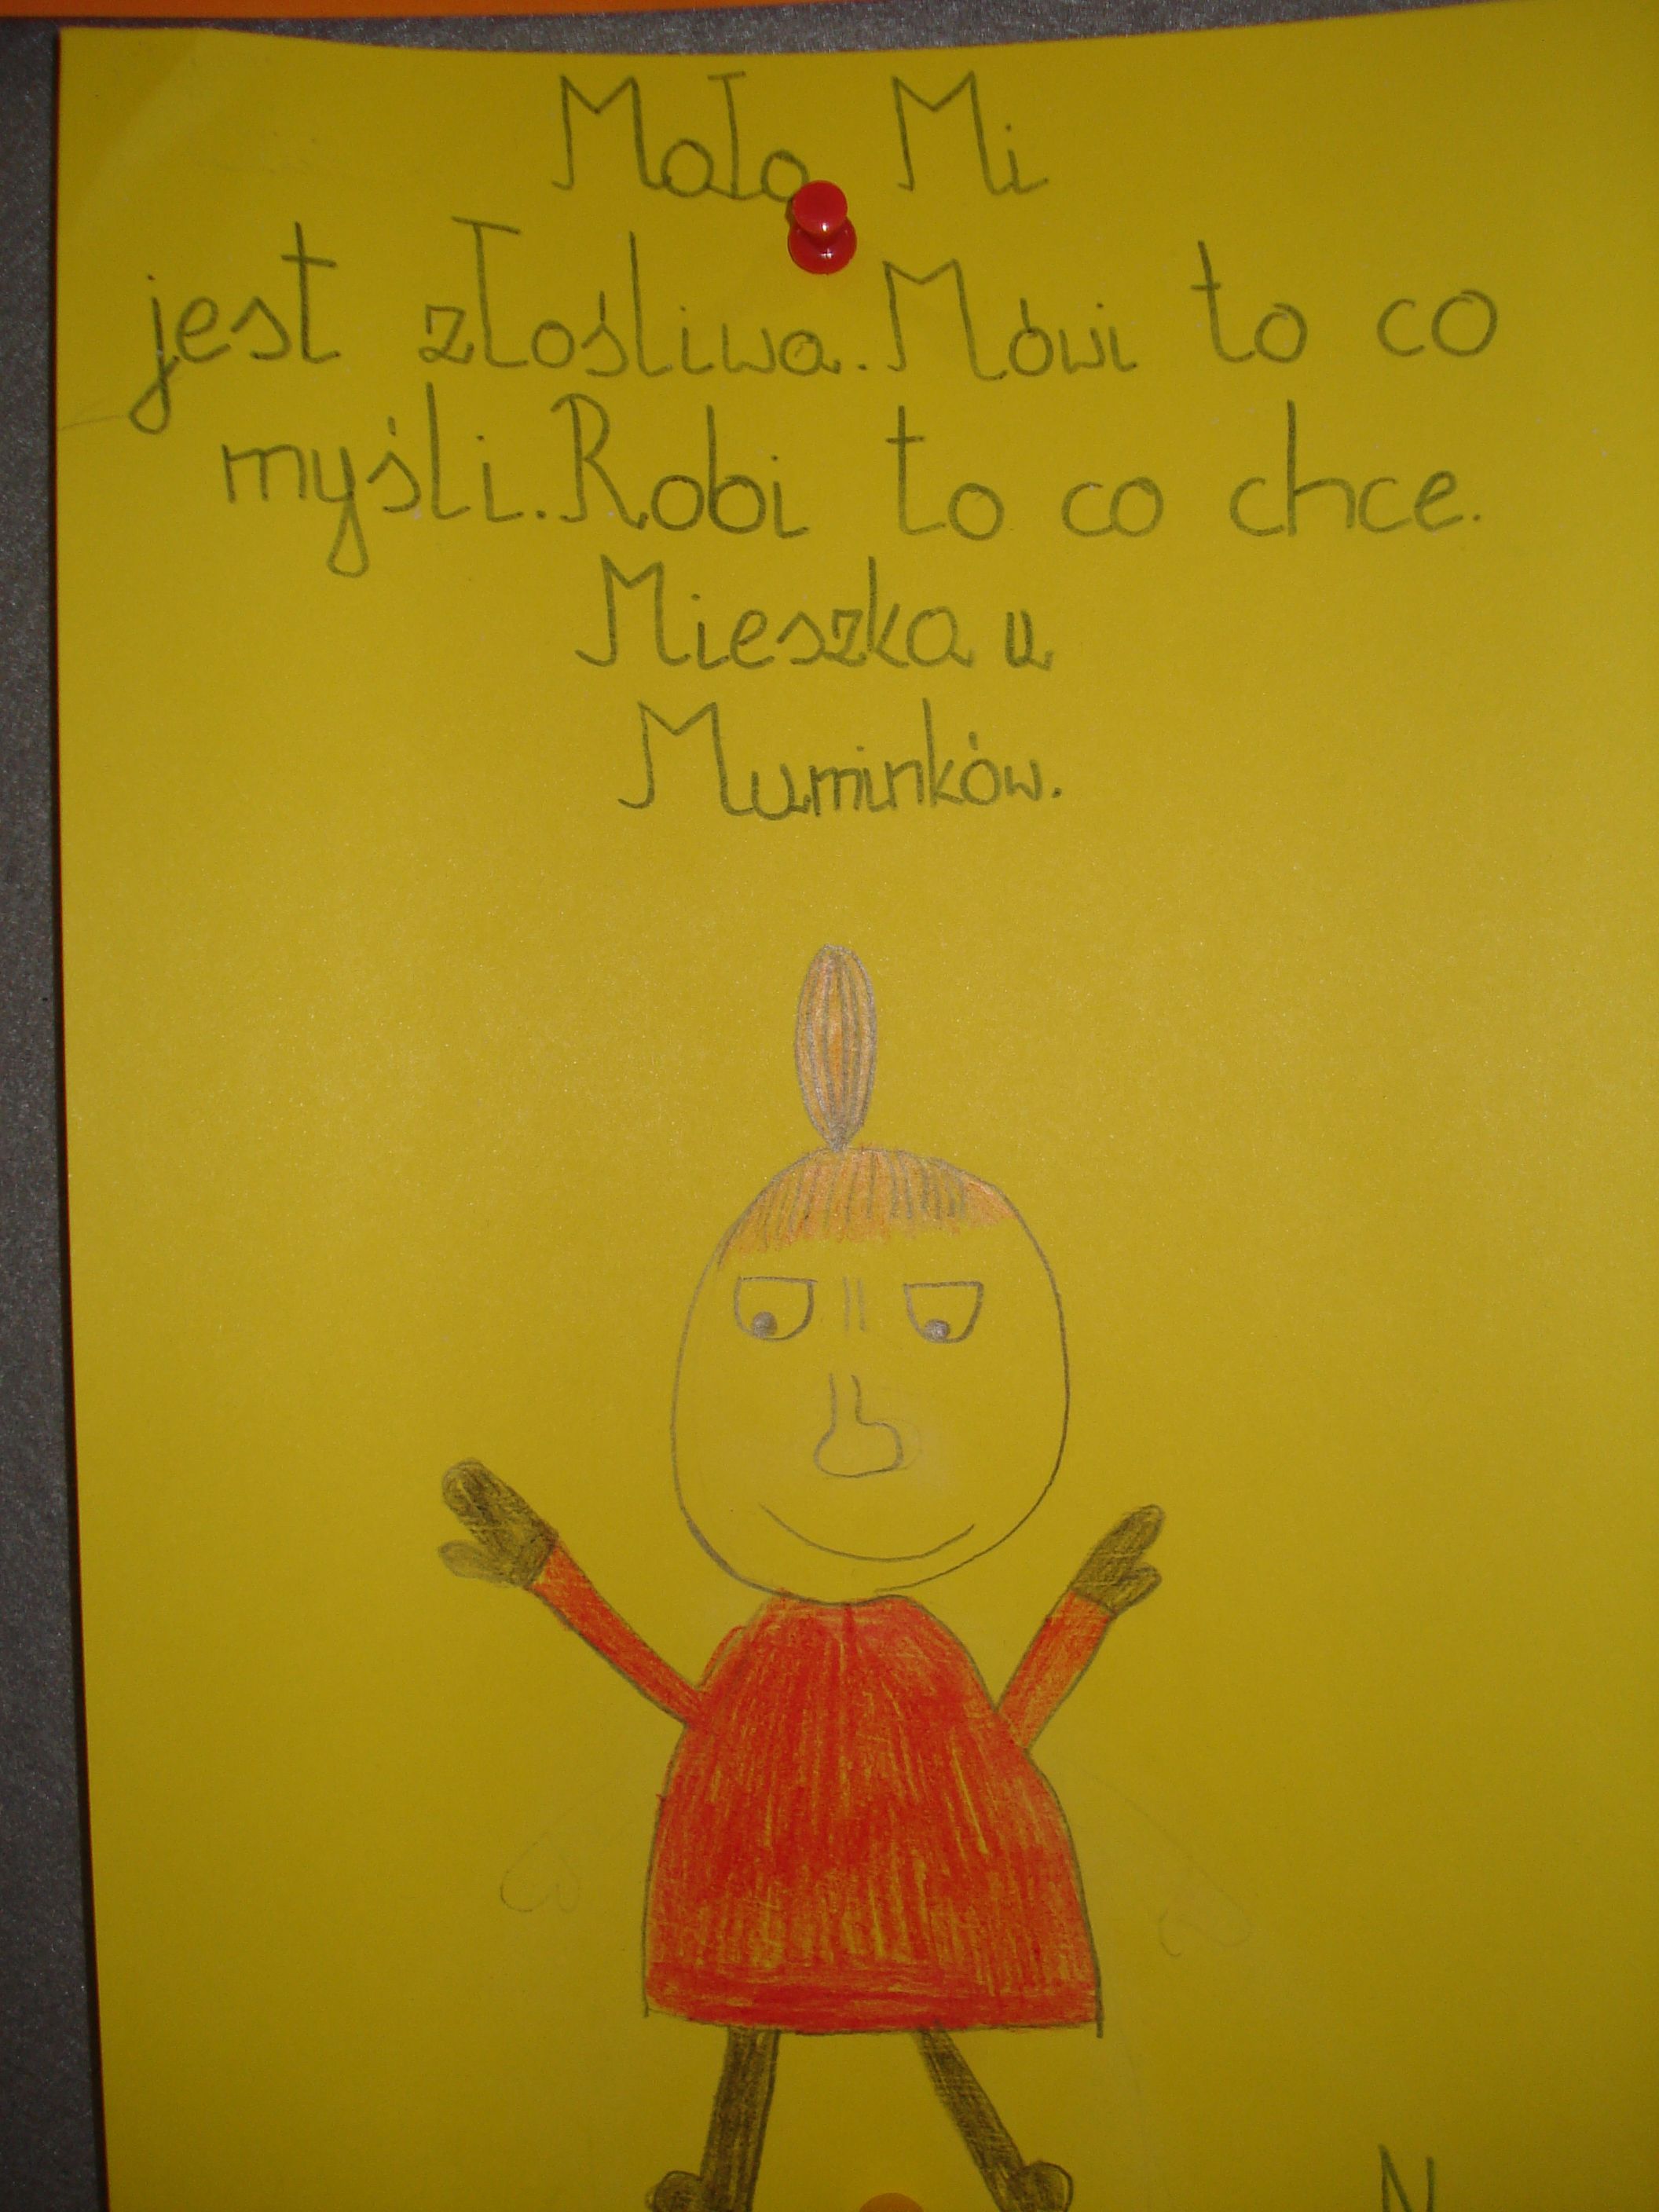 Mała Mi
jest złośliwa. Mówi to co
myśli. Robi to co chce.
Mieszka u
Muminków.
N